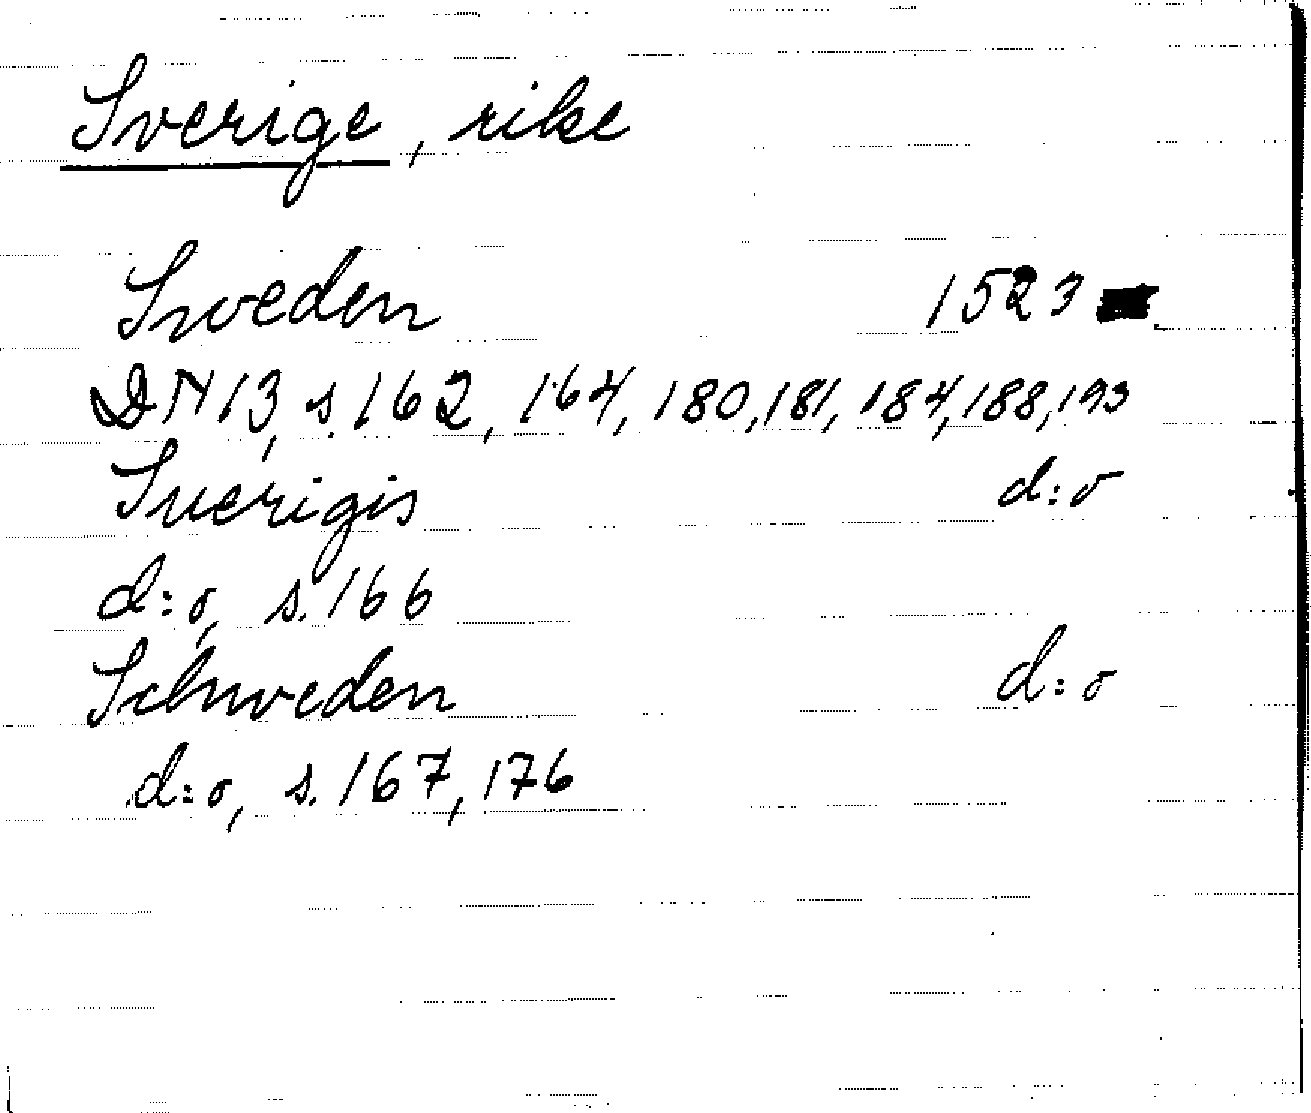 Sverige, rike
Sweden 1523
DN 13, s. 162, 164, 180, 181, 184, 188, 193
Suerigis d:o
d:o, s. 166
Schweden d:o
d:o, s. 167, 176